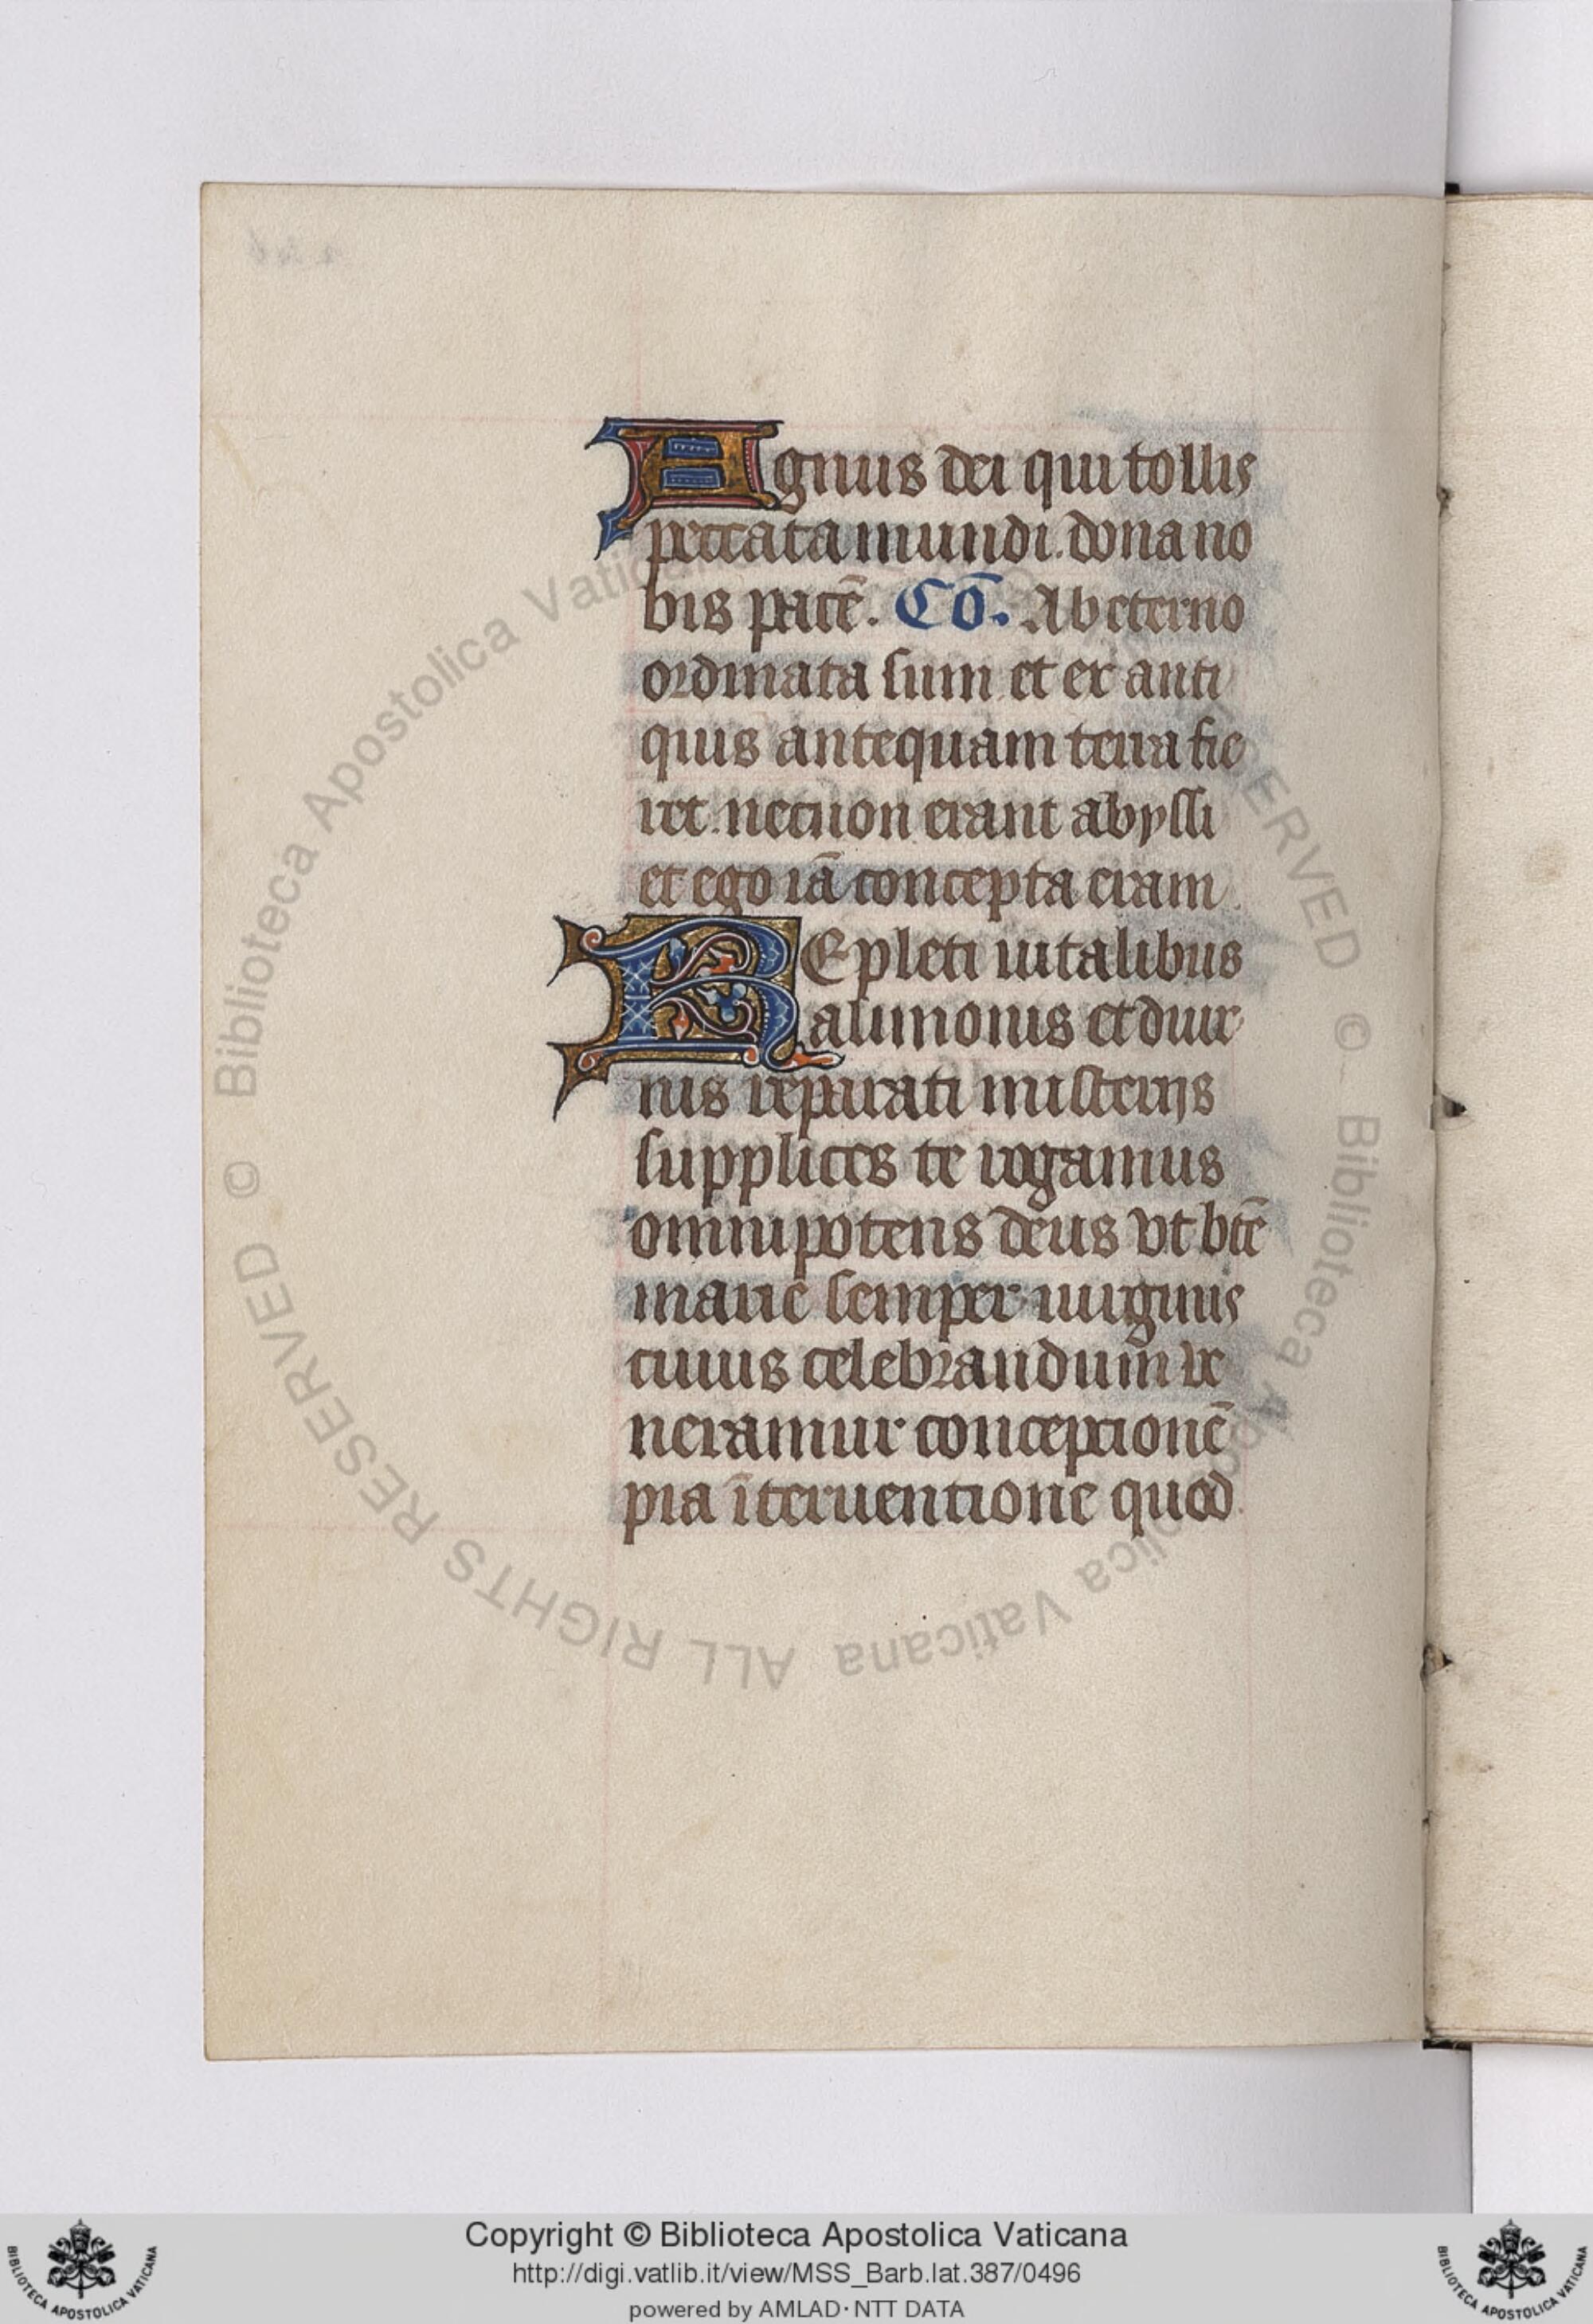 Agnus dei qui tollis
peccata mundi. dona no
bis pacē. Cō. Ab eterno
ordinata sum et ex anti
quis antequam terra fie
ret. necnon erant abyssi
et ego iā concepta eram
REpleti uitalibus
alimoniis et diui
nis reparati misterijs
supplices te rogamus
omnipotens deus vt btē
marie semper uirginis
cuius celebrandum ve
neramur conceptionē
pia īteruentione quod
© Biblioteca Apostolica Vaticana ALL RIGHTS RESERVED
© Biblioteca Apostolica Vaticana ALL RIGHTS RESERVED
Copyright © Biblioteca Apostolica Vaticana
http://digi.vatlib.it/view/MSS_Barb.lat.387/0496
powered by AMLAD·NTT DATA
BIBLIOTECA APOSTOLICA VATICANA
BIBLIOTECA APOSTOLICA VATICANA